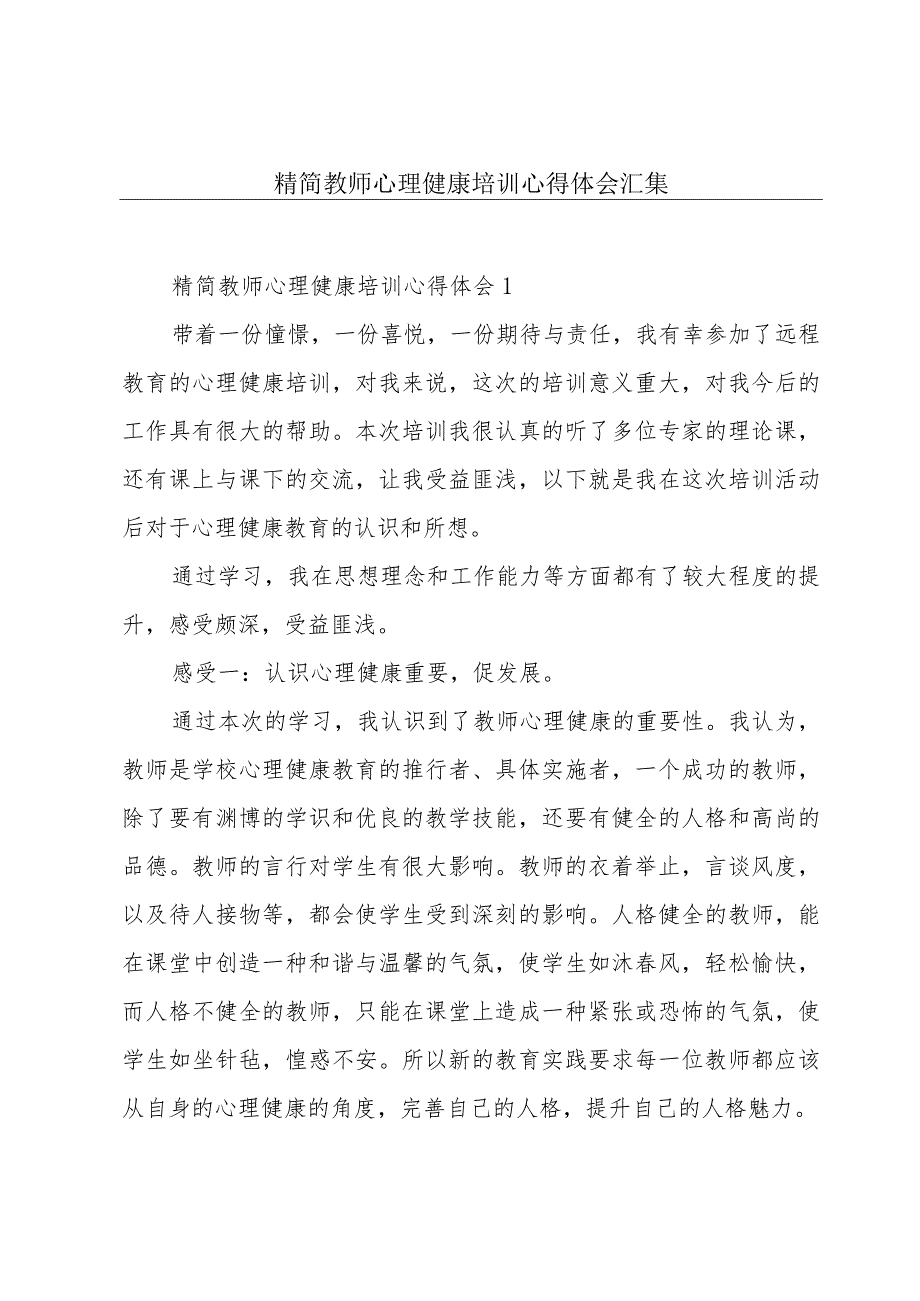 精简教师心理健康培训心得体会汇集
精简教师心理健康培训心得体会1
带着一份憧憬，一份喜悦，一份期待与责任，我有幸参加了远程
教育的心理健康培训，对我来说，这次的培训意义重大，对我今后的
工作具有很大的帮助。本次培训我很认真的听了多位专家的理论课，
还有课上与课下的交流，让我受益匪浅，以下就是我在这次培训活动
后对于心理健康教育的认识和所想。
通过学习，我在思想理念和工作能力等方面都有了较大程度的提
升，感受颇深，受益匪浅。
感受一：认识心理健康重要，促发展。
通过本次的学习，我认识到了教师心理健康的重要性。我认为，
教师是学校心理健康教育的推行者、具体实施者，一个成功的教师，
除了要有渊博的学识和优良的教学技能，还要有健全的人格和高尚的
品德。教师的言行对学生有很大影响。教师的衣着举止，言谈风度，
以及待人接物等，都会使学生受到深刻的影响。人格健全的教师，能
在课堂中创造一种和谐与温馨的气氛，使学生如沐春风，轻松愉快，
而人格不健全的教师，只能在课堂上造成一种紧张或恐怖的气氛，使
学生如坐针毡，惶惑不安。所以新的教育实践要求每一位教师都应该
从自身的心理健康的角度，完善自己的人格，提升自己的人格魅力。